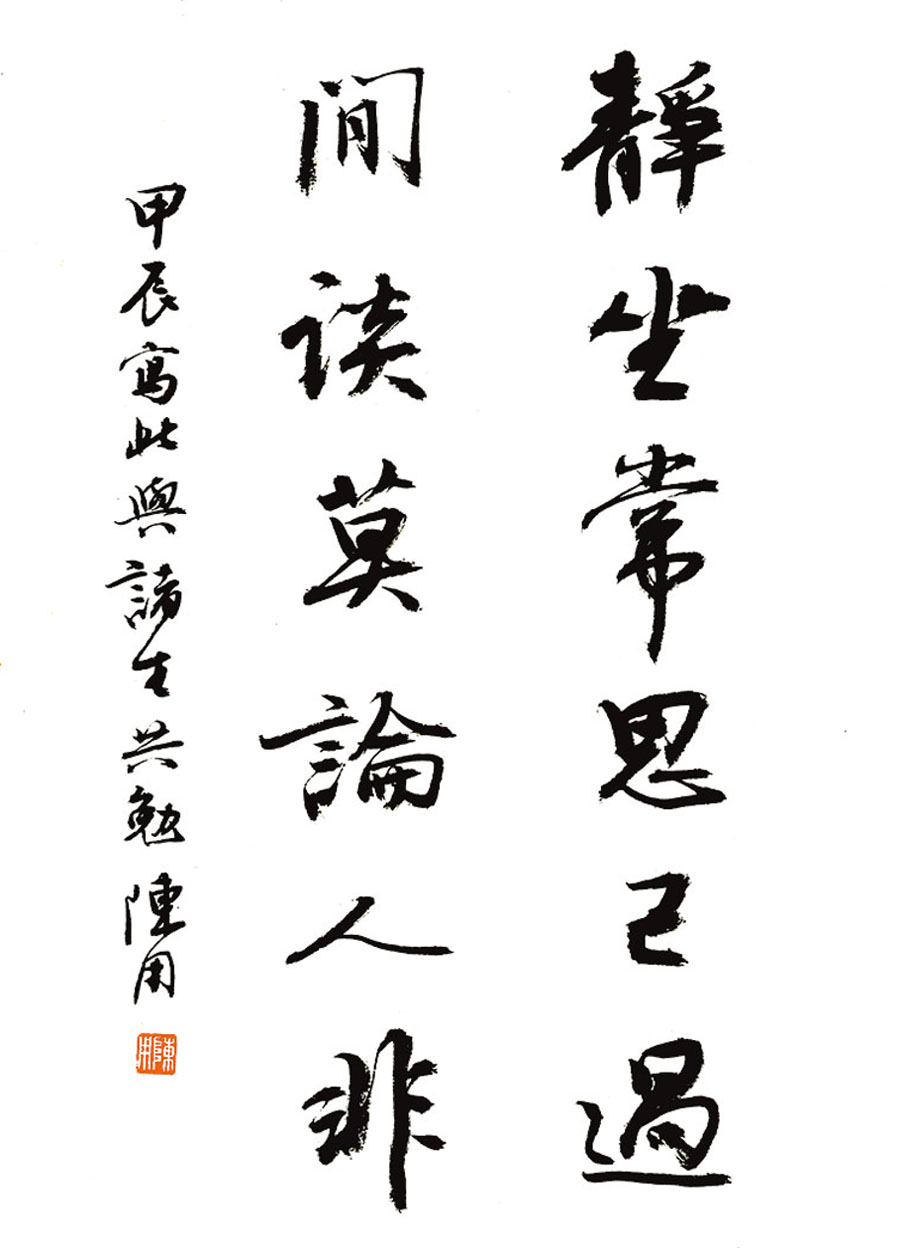 靜坐常思己過
閒談莫論人非
甲辰寫此與諸生共勉 陳用
陳用